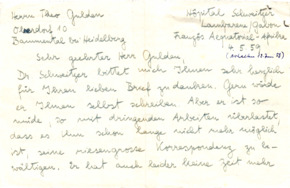 Herrn Theo Gulden
Oberdorf 10
Bammental bei Heidelberg
Hôpital Schweitzer
Lambarene/Gabon
Französ Äquatorial-Afrika
4.5.59
Sehr geehrter Herr Gulden,
Dr Schweitzer bittet mich Ihnen sehr herzlich
für Ihren lieben Brief zu danken. Gern würde
er Ihnen selbst schreiben. Aber er ist so
müde, so mit dringenden Arbeiten überlastet,
dass es ihm schon lange nicht mehr möglich
ist, seine riesengrosse Korrespondenz zu be-
wältigen. Er hat auch leider keine Zeit mehr